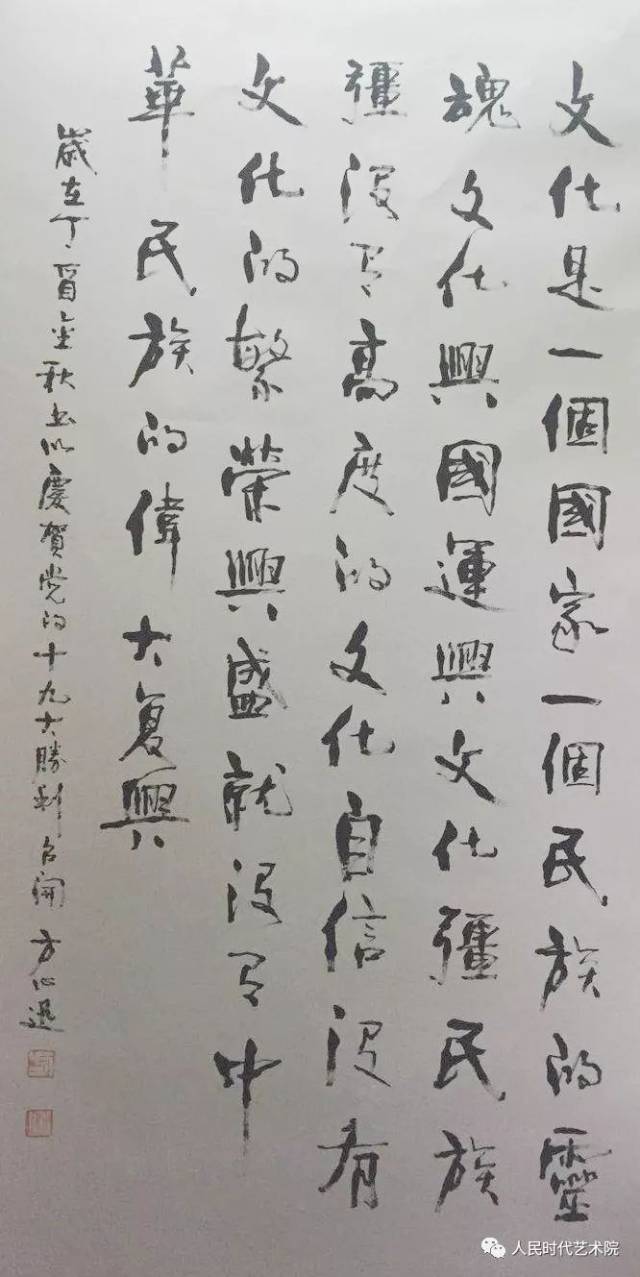 文化是一個國家一個民族的靈
魂文化興國運興文化彊民族
彊沒有高度的文化自信沒有
文化的繁榮興盛就沒有中
華民族的偉大复興
歲在丁酉金秋书以慶賀党的十九大勝利召開 方心選
人民时代艺术院